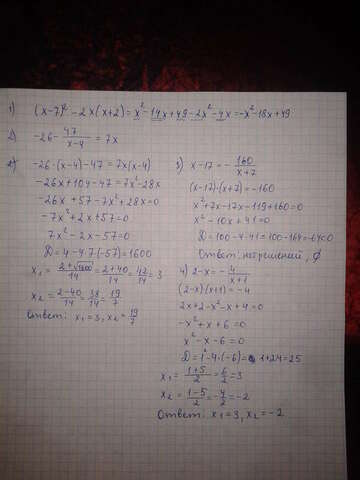 1) (x-7)² - 2x(x+2) = x² - 14x + 49 - 2x² - 4x = -x² - 18x + 49
2) -26 - 47/(x-4) = 7x
2) -26·(x-4) - 47 = 7x(x-4)
-26x + 104 - 47 = 7x² - 28x
-26x + 57 - 7x² + 28x = 0
-7x² + 2x + 57 = 0
7x² - 2x - 57 = 0
D = 4 - 4·7·(-57) = 1600
x₁ = (2+√1600)/14 = (2+40)/14 = 42/14 = 3
x₂ = (2-40)/14 = 38/14 = 19/7
Ответ: x₁ = 3, x₂ = 19/7
3) x - 17 = - 160/(x+7)
(x-17)·(x+7) = -160
x² + 7x - 17x - 119 + 160 = 0
x² - 10x + 41 = 0
D = 100 - 4·41 = 100 - 164 = -64 < 0
Ответ: нет решений, ∅
4) 2 - x = - 4/(x+1)
(2-x)·(x+1) = -4
2x + 2 - x² - x + 4 = 0
-x² + x + 6 = 0
x² - x - 6 = 0
D = 1² - 4·(-6) = 1 + 24 = 25
x₁ = (1+5)/2 = 6/2 = 3
x₂ = (1-5)/2 = -4/2 = -2
Ответ: x₁ = 3, x₂ = -2